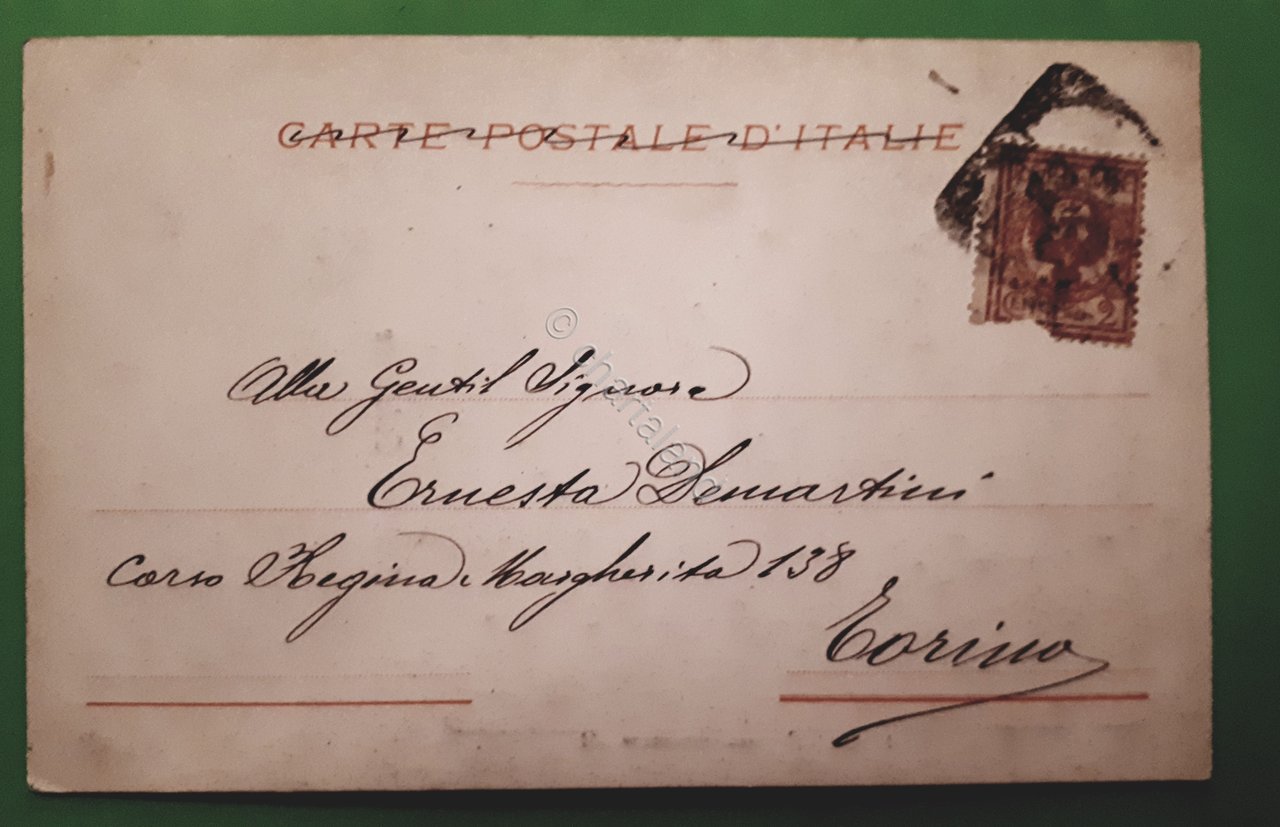 CARTE POSTALE D'ITALIE
2
© chartaland
Alla Gentil Signora
Ernesta Demartini
Corso Regina Margherita 138
Torino